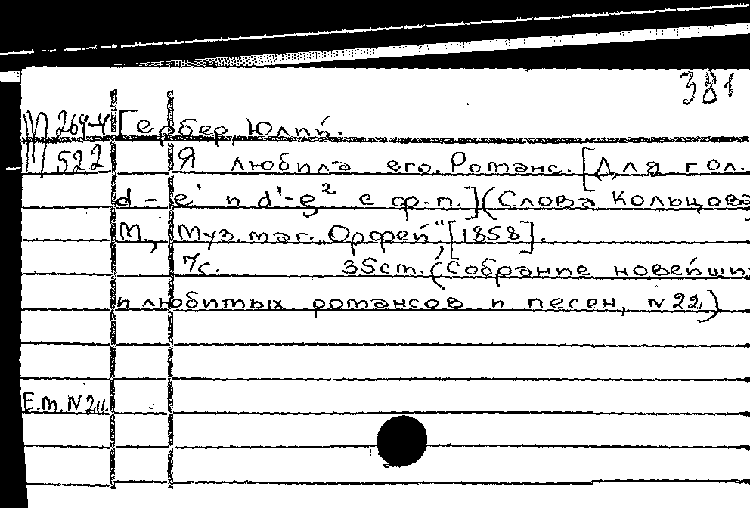 381
М 269-4 Гербер, Юлий.
522 Я любила его. Романс. [Для гол.
d – e' и d'-g² с ф.п.] (Слова Кольцова
М., Муз. маг. „Орфей", [1858].
7с. 35см. (Собрание новейши
и любимых романсов и песен, N22)
Е.т. N2ц.